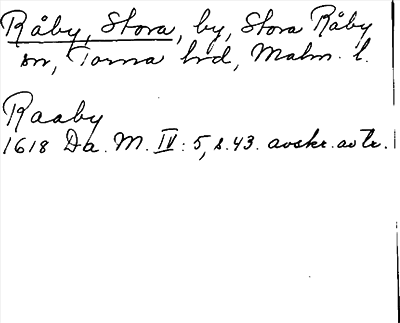 Råby, Stora, by, Stora Råby
sn, Torna hrd, Malm. l.
Raaby
1618 Da. M. IV: 5, s. 43. avskr. av tr.